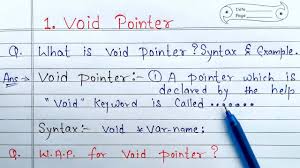 1. Void Pointer
Q. What is void pointer? Syntax & Example.
Ans → Void pointer:- ① A pointer which is
declared by the help
"Void" Keyword is Called .......
Syntax:- void * var-name;
Q. W.A.P. for Void pointer?